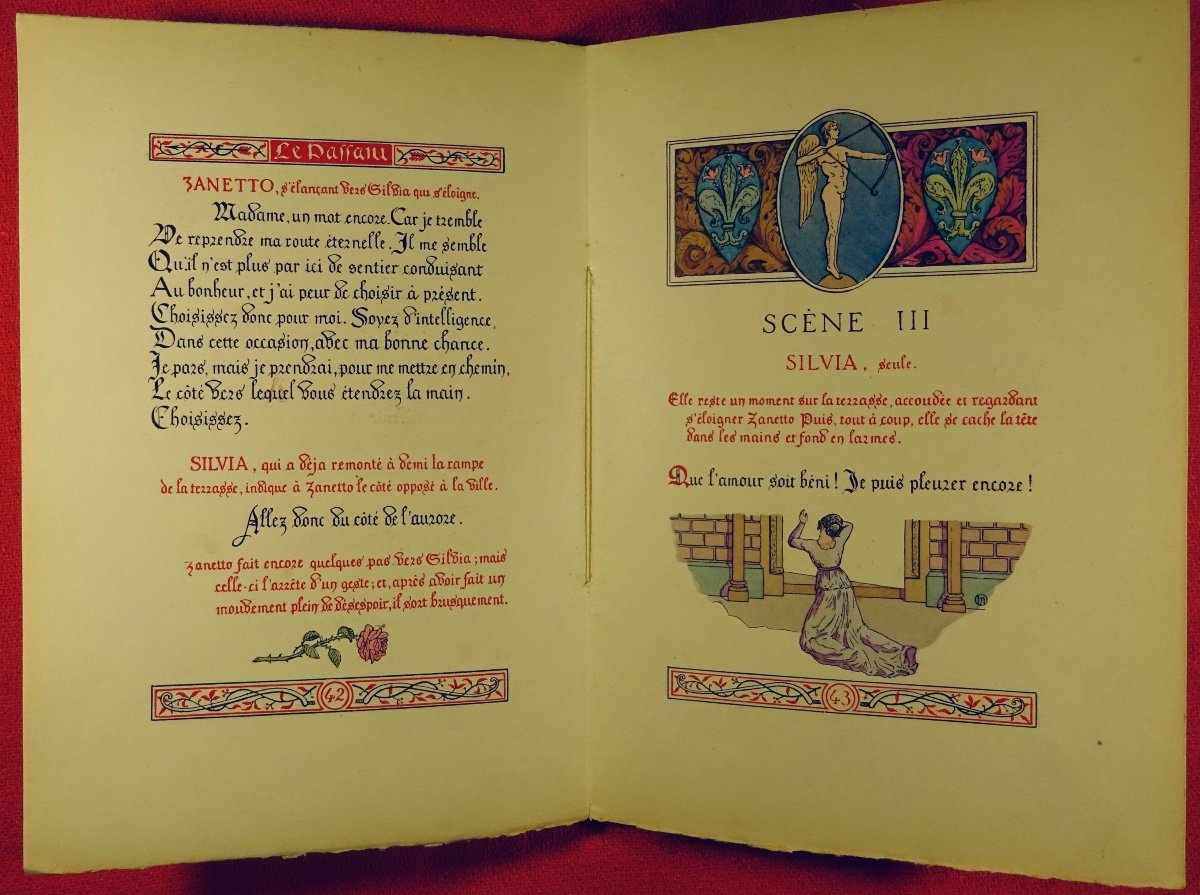 Le Passant
ZANETTO, s'élançant vers Silvia qui s'éloigne.
Madame, un mot encore. Car je tremble
De reprendre ma route éternelle. Il me semble
Qu'il n'est plus par ici de sentier conduisant
Au bonheur, et j'ai peur de choisir à présent.
Choisissez donc pour moi. Soyez d'intelligence,
Dans cette occasion, avec ma bonne chance.
Je pars, mais je prendrai, pour me mettre en chemin,
Le côté vers lequel vous étendrez la main.
Choisissez.
SILVIA, qui a déja remonté à demi la rampe
de la terrasse, indique à Zanetto le côté opposé à la ville.
Allez donc du côté de l'aurore.
Zanetto fait encore quelques pas vers Silvia; mais
celle-ci l'arrête d'un geste; et, après avoir fait un
mouvement plein de désespoir, il sort brusquement.
42
SCÈNE III
SILVIA, seule.
Elle reste un moment sur la terrasse, accoudée et regardant
s'éloigner Zanetto Puis, tout à coup, elle se cache la tête
dans les mains et fond en larmes.
Que l'amour soit béni! Je puis pleurer encore!
43